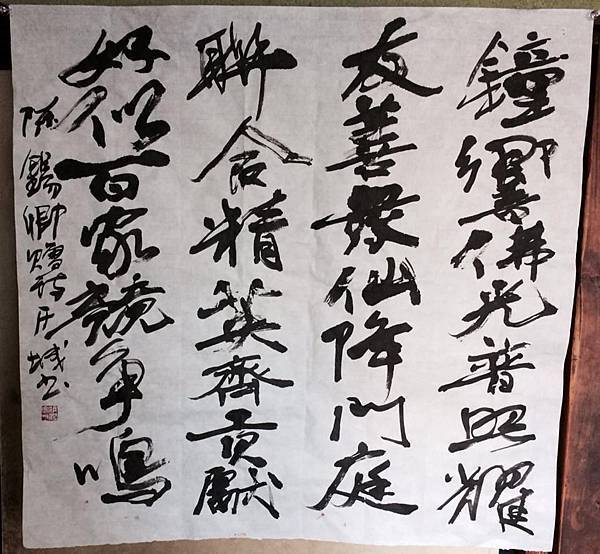 鐘響佛光普照耀
友善眾仙降門庭
聯合精英齊貢獻
好似百家競爭鳴
陳錫卿贈詩丹城书